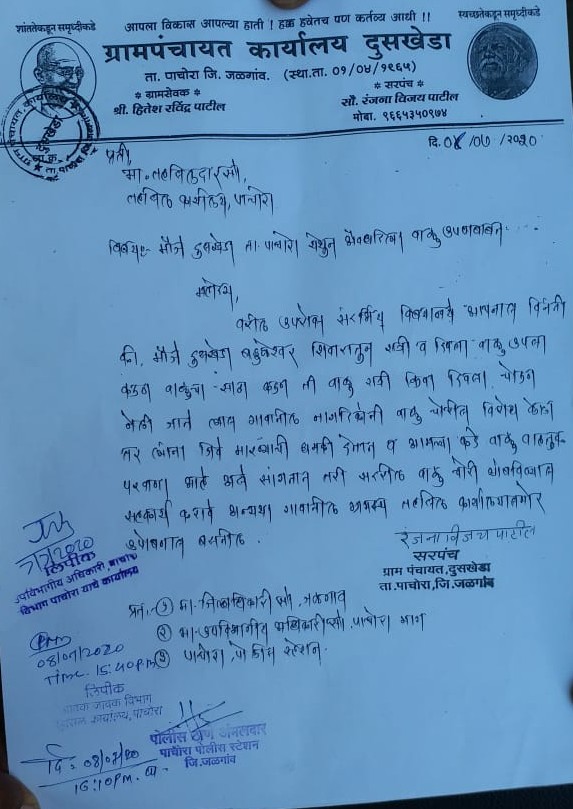 शांततेकडून समृध्दीकडे
आपला विकास आपल्या हाती ! हक्क हवेतच पण कर्तव्य आधी !!
स्वच्छतेकडून समृध्दीकडे
ग्रामपंचायत कार्यालय दुसखेडा
ता. पाचोरा जि. जळगांव. (स्था.ता. ०१/०४/१९६५)
* ग्रामसेवक *
श्री. हितेश रविंद्र पाटील
* सरपंच *
सौ. रंजना विजय पाटील
मोबा. ९६६५३५०९७४
दि. /०७/२०२०
प्रती,
मा. तहसिलदार सो,
तहसिल कार्यालय, पाचोरा
विषय:- मौजे दुसखेडा ता. पाचोरा येथुन वाळु उपसाबाबत
महोदय,
वरील उपरोक्त संदर्भिय विषयान्वये आपणास विनंती
की, मौजे दुसखेडा शिवारातुन रात्री व दिवसा वाळु उपसा
करुन वाळुचा साठा करुन ती वाळु रात्री किंवा दिवसा चोरुन
नेली जाते त्यास गावातील नागरिकांनी वाळु चोरीस विरोध केला
तर त्यांना जिवे मारण्याची धमकी देतात व आमच्या कडे वाळु वाहतुक
परवाना आहे असे सांगतात तरी सदरील वाळु चोरी थांबविण्यास
सहकार्य करावे अन्यथा गावातील ग्रामस्थ तहसिल कार्यालयासमोर
उपोषणास बसतील.
रंजना विजय पाटील
सरपंच
ग्राम पंचायत, दुसखेडा
ता. पाचोरा, जि. जळगांव
प्रत. १) मा. जिल्हाधिकारी सो, जळगाव
२) मा. उपविभागीय अधिकारी सो, पाचोरा भाग
३) पाचोरा, पोलीस स्टेशन.
7/7/2020
लिपीक
उपविभागीय अधिकारी, पाचोरा
विभाग पाचोरा यांचे कार्यालय
08/07/2020
Time. 15:40 pm
लिपीक
आवक जावक विभाग
कार्यालय, पाचोरा
पोलीस ठाणे अंमलदार
पाचोरा पोलीस स्टेशन
जि. जळगांव
दि: 08/07/20
16:10 PM.